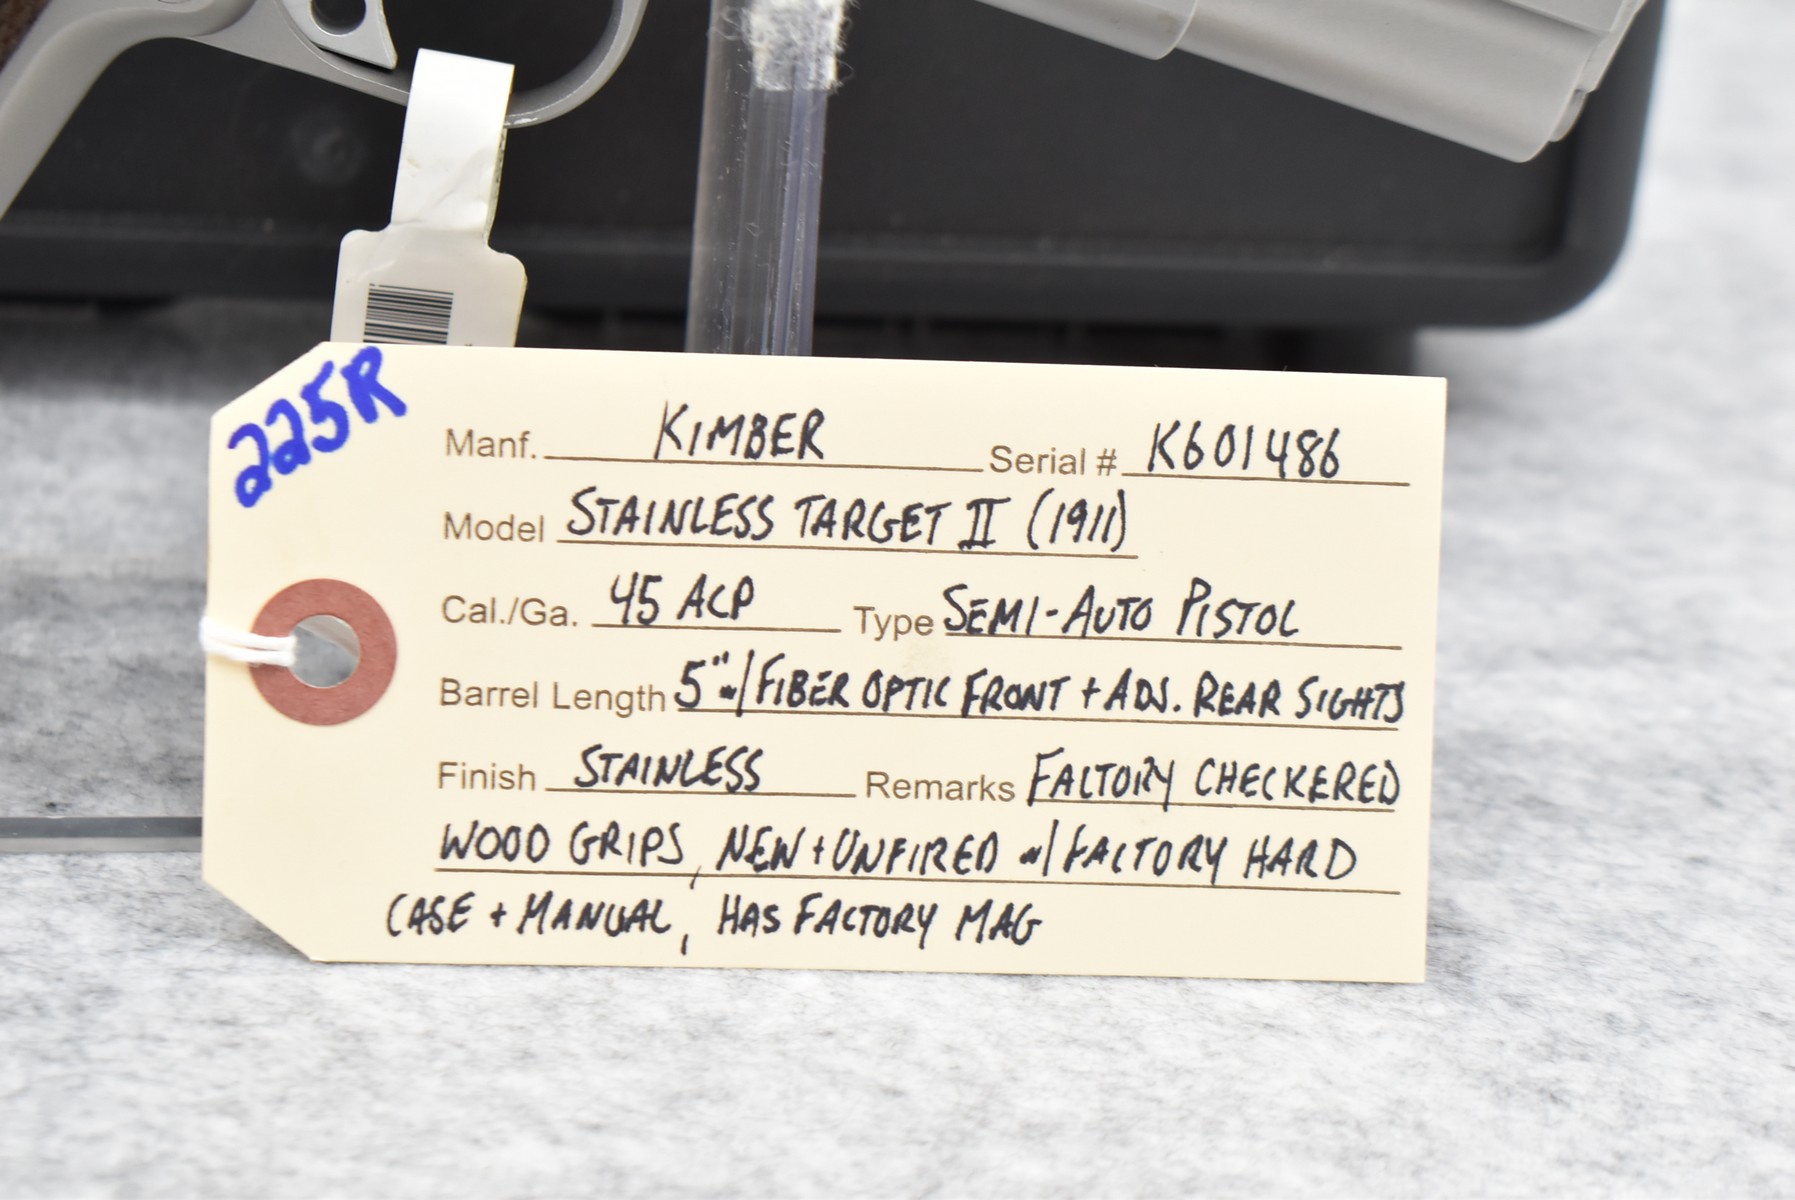 225R
Manf. KIMBER Serial # K601486
Model STAINLESS TARGET II (1911)
Cal./Ga. 45 ACP Type SEMI-AUTO PISTOL
Barrel Length 5" w/ FIBER OPTIC FRONT + ADJ. REAR SIGHTS
Finish STAINLESS Remarks FACTORY CHECKERED
WOOD GRIPS, NEW + UNFIRED w/ FACTORY HARD
CASE + MANUAL, HAS FACTORY MAG